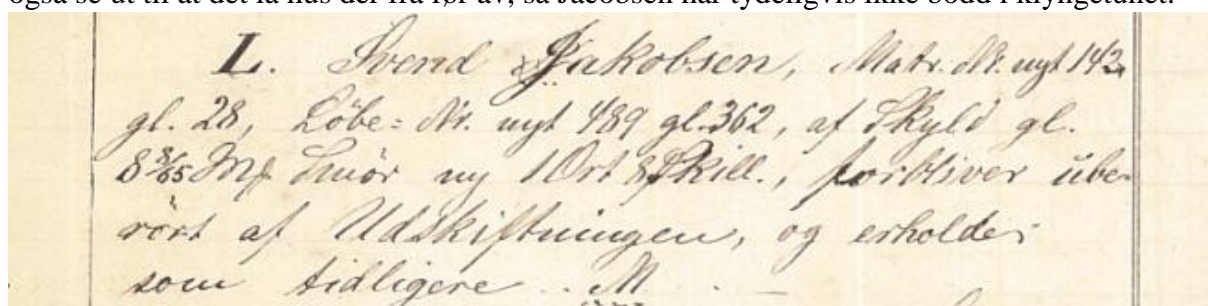 også se ut til at det lå hus der fra før av, så Jacobsen har tydeligvis ikke bodd i klyngetunet.
L. Svend Jakobsen, Matr. Nr. nyt 142,
gl. 28, Löbe= Nr. nyt 489 gl. 362, af Skyld gl.
8 Smör ny 1 Ort 8 Skill., forbliver ube-
rört af Udskiftningen, og erholder
som tidligere .. M. . –